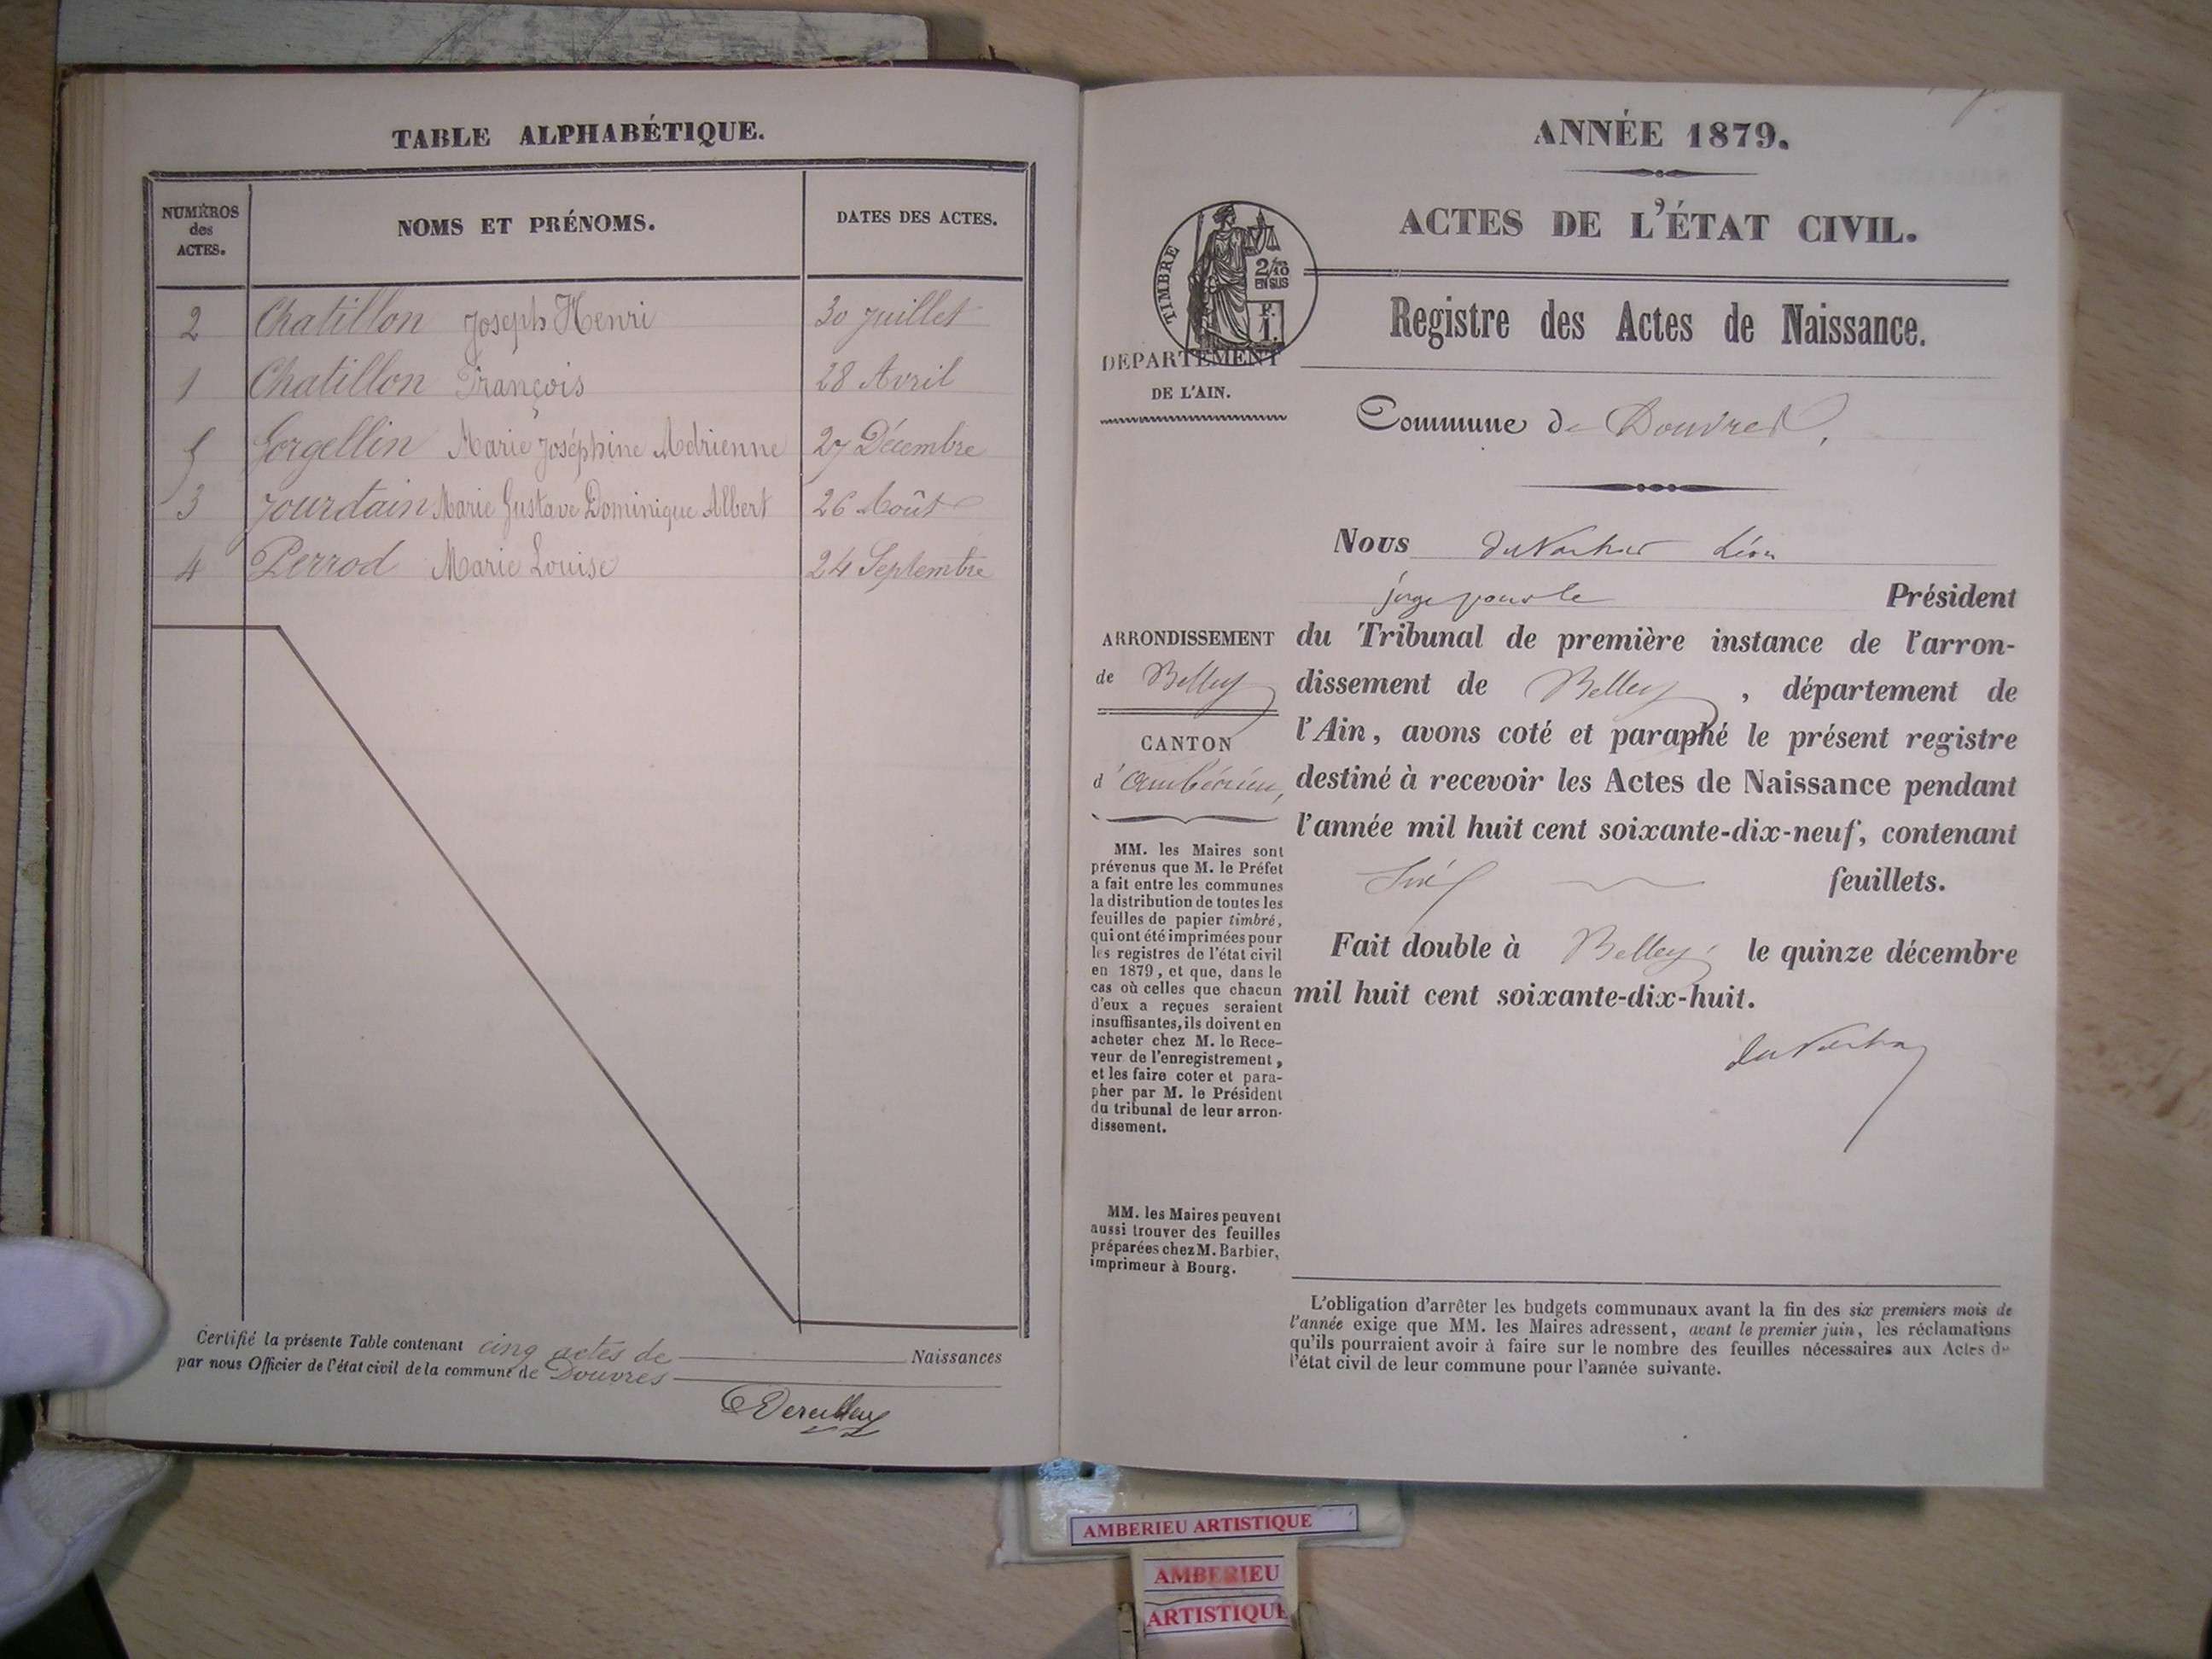 TABLE ALPHABÉTIQUE.
NUMÉROS des ACTES.
NOMS ET PRÉNOMS.
DATES DES ACTES.
2 Chatillon Joseph Henri 30 juillet
1 Chatillon François 28 Avril
5 Gorgellin Marie Joséphine Adrienne 27 Décembre
3 Jourdain Marie Gustave Dominique Albert 26 Août
4 Perrod Marie Louise 24 Septembre
Certifié la présente Table contenant cinq actes de Naissances
par nous Officier de l'état civil de la commune de Douvres
ANNÉE 1879.
ACTES DE L'ÉTAT CIVIL.
TIMBRE
2/10
EN SUS
F.
1.
Registre des Actes de Naissance.
DÉPARTEMENT
DE L'AIN.
Commune de Douvres,
Nous Léon
juge pour le Président
ARRONDISSEMENT
de Belley
CANTON
d'Ambérieu,
du Tribunal de première instance de l'arron-
dissement de Belley, département de
l'Ain, avons coté et paraphé le présent registre
destiné à recevoir les Actes de Naissance pendant
l'année mil huit cent soixante-dix-neuf, contenant
feuillets.
Fait double à Belley le quinze décembre
mil huit cent soixante-dix-huit.
MM. les Maires sont
prévenus que M. le Préfet
a fait entre les communes
la distribution de toutes les
feuilles de papier timbré,
qui ont été imprimées pour
les registres de l'état civil
en 1879, et que, dans le
cas où celles que chacun
d'eux a reçues seraient
insuffisantes, ils doivent en
acheter chez M. le Rece-
veur de l'enregistrement,
et les faire coter et para-
pher par M. le Président
du tribunal de leur arron-
dissement.
MM. les Maires peuvent
aussi trouver des feuilles
préparées chez M. Barbier,
imprimeur à Bourg.
L'obligation d'arrêter les budgets communaux avant la fin des six premiers mois de
l'année exige que MM. les Maires adressent, avant le premier juin, les réclamations
qu'ils pourraient avoir à faire sur le nombre des feuilles nécessaires aux Actes de
l'état civil de leur commune pour l'année suivante.
AMBERIEU ARTISTIQUE
AMBERIEU
ARTISTIQUE